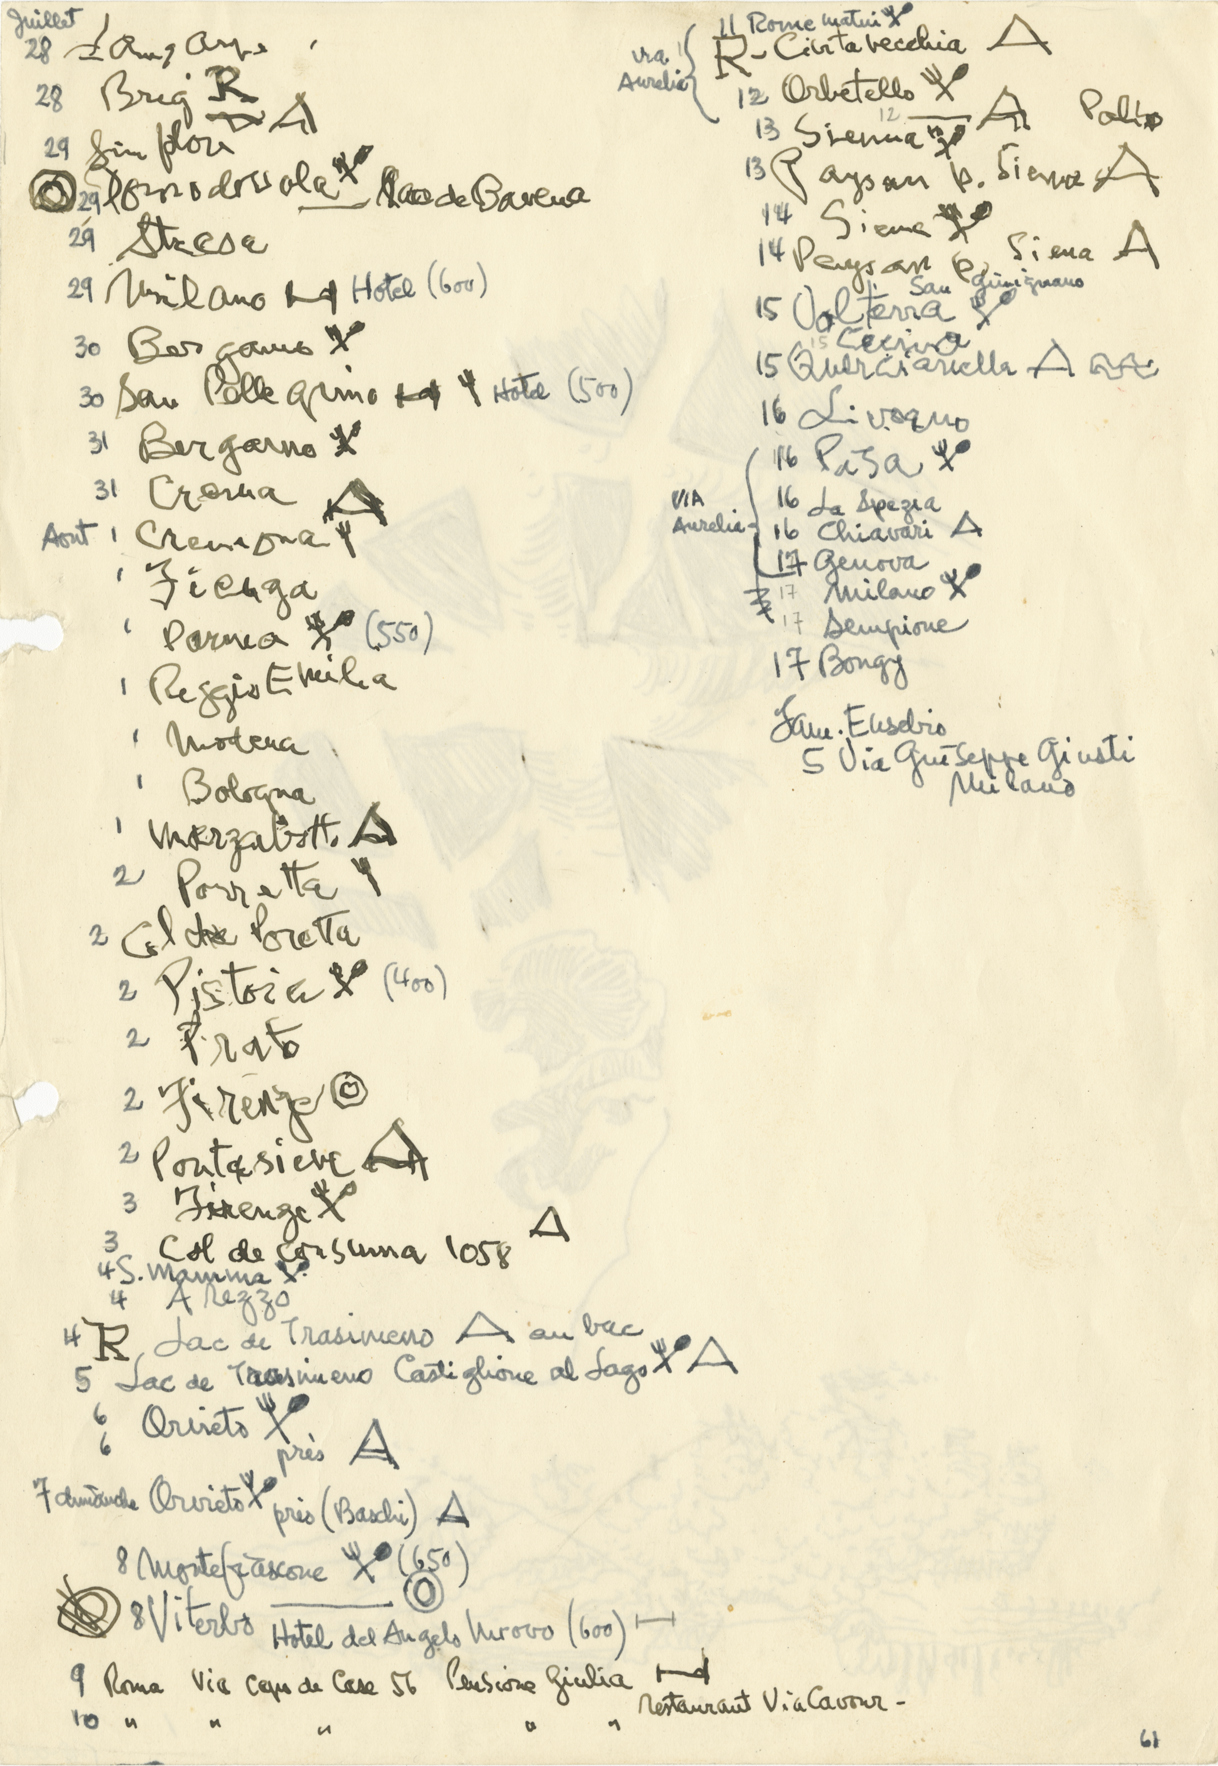 Juillet
28
28 Brig R
29 Simplon
29 Domodossola Lac de Baveno
29 Stresa
29 Milano Hotel (600)
30 Bergamo
30 San Pellegrino Hotel (500)
31 Bergamo
31 Crema
Aout 1 Cremona
' Fidenza
' Parma (550)
' Reggio Emilia
' Modena
' Bologna
' Marzabotto
2 Porretta
2 Col de Poretta
2 Pistoia (400)
2 Prato
2 Firenze
2 Pontasieve
3 Firenze
3 Col de Consuma 1058
4 S. Mamma
4 Arezzo
4 R Lac de Trasimeno au bac
5 Lac de Trasimeno Castiglione al Lago
6 Orvieto
6 près
7 dimanche Orvieto près (Baschi)
8 Montefiascone (650)
8 Viterbo Hotel del Angelo Nuovo (600)
9 Roma Via Capo de Case 56 Pensione Giulia
restaurant Via Cavour -
10 " " " " "
11 Rome matin
via Aurelia
R - Civitavecchia
12 Orbetello
12
13 Sienna Palio
13 Paysan p. Sienna
14 Siena
14 Paysan p. Siena
San Gimignano
15 Volterra
15 Cecina
15 Quercianella
16 Livorno
16 Pisa
VIA Aurelia
16 La Spezia
16 Chiavari
17 Genova
17 Milano
17 Sempione
17 Bongy
Fam. Eusebio
5 Via Guiseppe Giusti
Milano
61